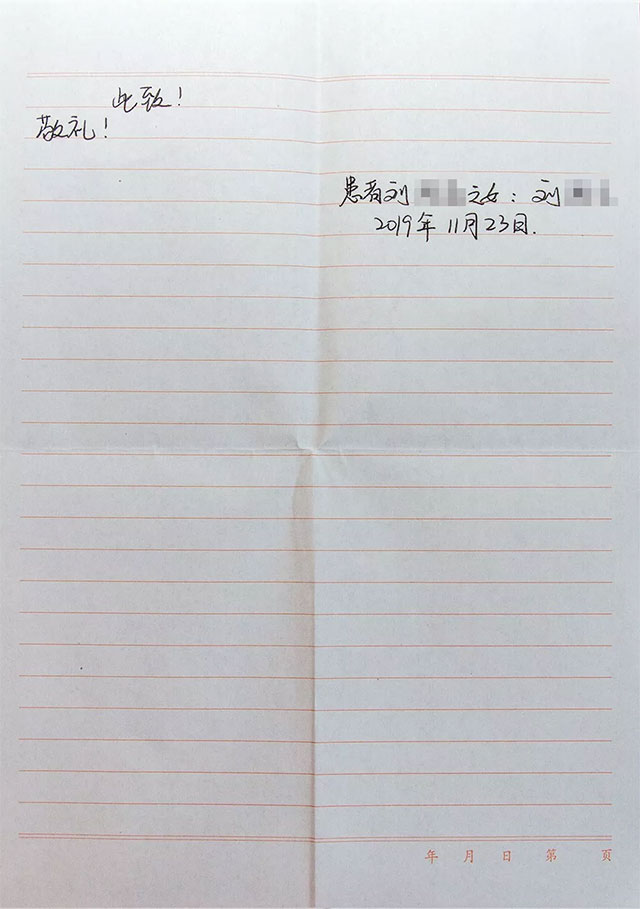 此致!
敬礼!
患者刘 之女:刘
2019年11月23日.
年 月 日 第 页